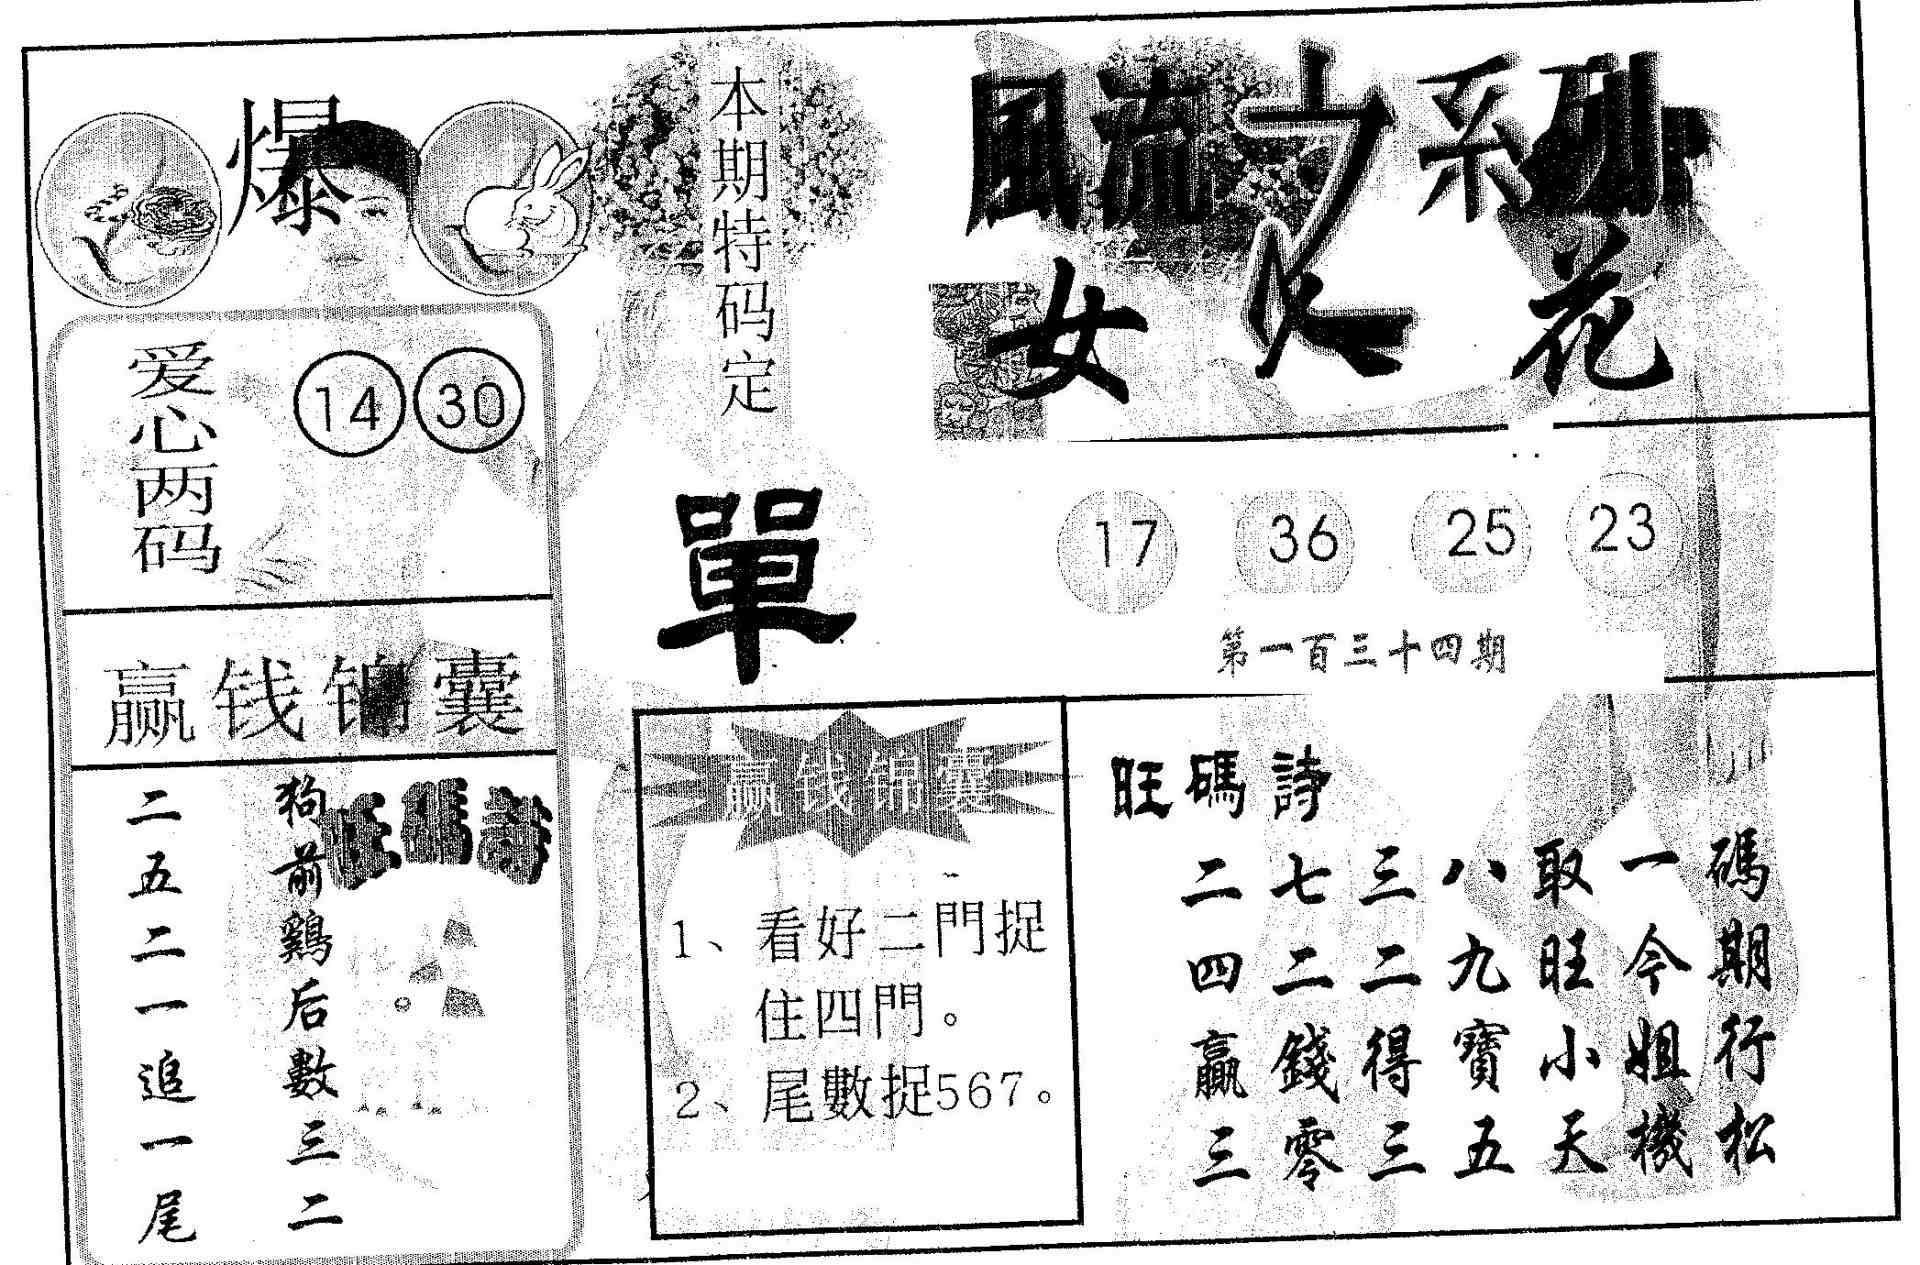 爆
爱心两码
14 30
赢钱锦囊
狗前鷄后數三二
二五二一追一尾
旺碼詩
本期特码定
單
風流女系列
女人花
17 36 25 23
第一百三十四期
赢钱锦囊
1、看好二門捉
住四門。
2、尾數捉567。
旺碼詩
二七三八取一碼
四二二九旺今期
贏錢得寶小姐行
三零三五天機松